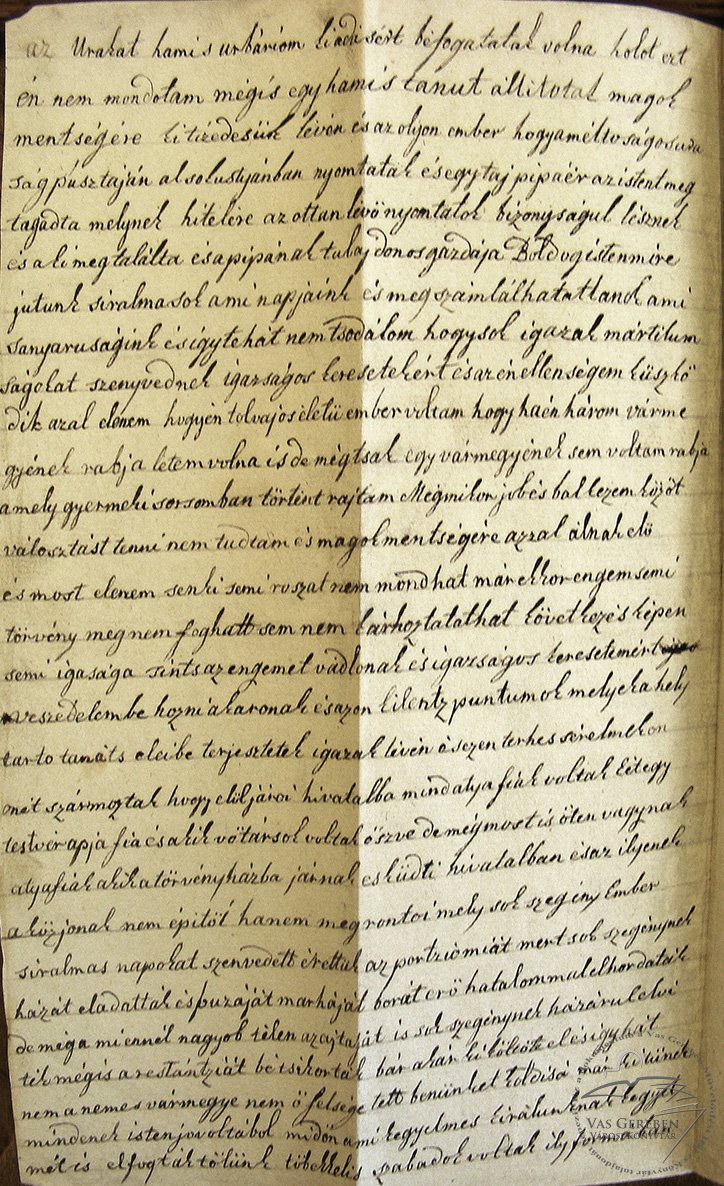 az Urakat hamis urbáriom kiadásért béfogatatak volna holot ezt
én nem mondotam mégis egy hamis tanut állitotak magok
mentségére kitizedesük lévén és az olyon ember hogy améltoságos ura
ság pusztaján alsolustyánban nyomtatak és egy taj pipaér azistent meg
tagadta melynek hitelére az ottan lévö nyomtatok bizonyságul lésznek
és aki megtalálta és apipának tulajdonos gazdája Boldog isten mire
jutunk siralmasok ami napjaink és megszámlálhatatlanok ami
sanyaruságink és igy tehát nem tsodálom hogy sok igazak mártilum
ságokat szenyvednek igazságos keresetekért és azén ellenségem küszkö
dik azal elenem hogyén tolvajos életü ember voltam hogy haén három várme
gyének rabja letem volna is de mégtsak egy vármegyének sem voltam rabja
amely gyermeki sorsomban történt rajtam Mégmikor job és bal kezem között
választást tenni nem tudtam és magok mentségére azzal álnak elö
és most elenem senki semi roszat nem mondhat már ekkor engem semi
törvény meg nem foghatt sem nem kárhoztatathat következés képen
semi igasága sints az engemet vádlonak és igazságos keresetemért
veszedelembe hozni akaronak és azon kilentz puntumok melyek a hely
tarto tanáts eleibe terjesztetek igazak lévén és ezen terhes sérelmekon
onét szármoztak hogy elöljárói hivatalba mind atyafiak voltak két egy
testvér apja fia és akik vötársok voltak öszve de még most is öten vagynak
atyafiak akik a törvényházba járnak esküdti hivatalban és az ilyenek
a közjonak nem épitöi hanem megrontoi mely sok szegény Ember
siralmas napokat szenvedett érettuk az portzio miát mert sok szegénynek
házát eladatták és buzáját marháját borát erö hatalommal elhordaták
de méga mi ennél nagyob télen az ajtaját is sok szegénynek házárul elvi
ték mégis a restántziát bétsikorták bár akár ki költözött el és igy hát
nem a nemes vármegye nem ö felsége tett benünket koldisá már ki tünek
mindenek isten jovoltábol midön ami kegyelmes királunknak kegyel
mét is elfogták tölünk többekkelis szabadok voltak ily formában
VAS GEREBEN
VÁROSI KÖNYVTÁR